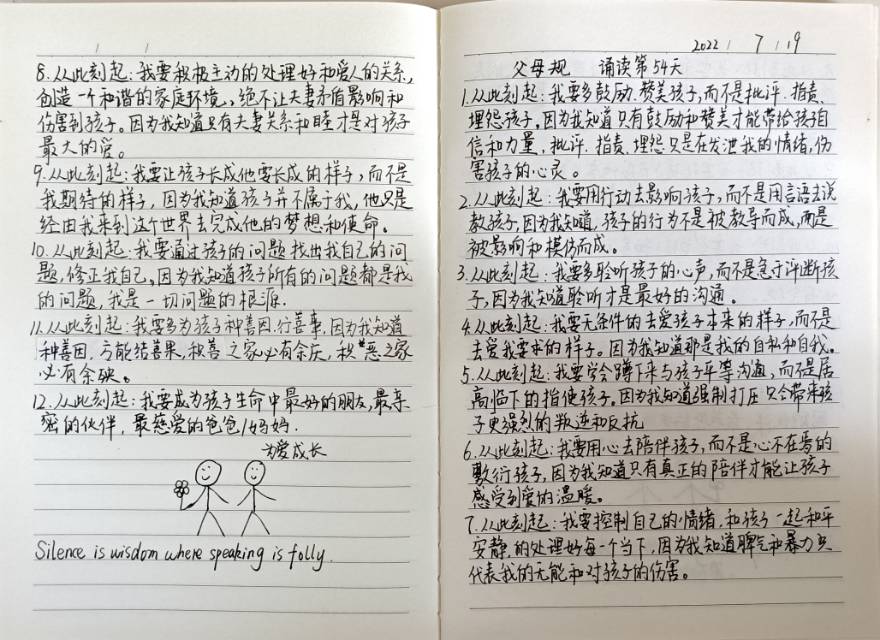 8.从此刻起:我要积极主动的处理好和爱人的关系,
创造一个和谐的家庭环境,绝不让夫妻矛盾影响和
伤害到孩子。因为我知道只有夫妻关系和睦才是对孩子
最大的爱。
9.从此刻起:我要让孩子长成他要长成的样子,而不是
我期待的样子,因为我知道孩子并不属于我,他只是
经由我来到这个世界去完成他的梦想和使命。
10.从此刻起:我要通过孩子的问题找出我自己的问
题,修正我自己,因为我知道孩子所有的问题都是我
的问题,我是一切问题的根源.
11.从此刻起:我要多为孩子种善因.行善事,因为我知道
种善因.方能结善果,积善之家必有余庆,积恶之家
必有余殃。
12.从此刻起:我要成为孩子生命中最好的朋友,最亲
密的伙伴,最慈爱的爸爸/妈妈.
为爱成长
Silence is wisdom where speaking is folly.
2022 / 7 / 19
父母规 诵读第54天
1.从此刻起:我要多鼓励、赞美孩子,而不是批评、指责、
埋怨孩子,因为我知道只有鼓励和赞美才能带给孩自
信和力量,批评、指责、埋怨只是在发泄我的情绪,伤
害孩子的心灵。
2.从此刻起:我要用行动去影响孩子,而不是用言语去说
教孩子,因为我知道,孩子的行为不是被教导而成,而是
被影响和模仿而成。
3.从此刻起:我要多聆听孩子的心声,而不是急于评断孩
子,因为我知道聆听才是最好的沟通。
4.从此刻起:我要无条件的去爱孩子本来的样子,而不是
去爱我要求的样子。因为我知道那是我的自私和自我。
5.从此刻起:我要学会蹲下来与孩子平等沟通,而不是居
高临下的指使孩子,因为我知道强制打压只会带来孩
子更强烈的叛逆和反抗
6.从此刻起:我要用心去陪伴孩子,而不是心不在焉的
敷衍孩子,因为我知道只有真正的陪伴才能让孩子
感受到爱的温暖。
7.从此刻起:我要控制自己的情绪,和孩子一起和平
安静的处理好每一个当下,因为我知道脾气和暴力只
代表我的无能和对孩子的伤害。